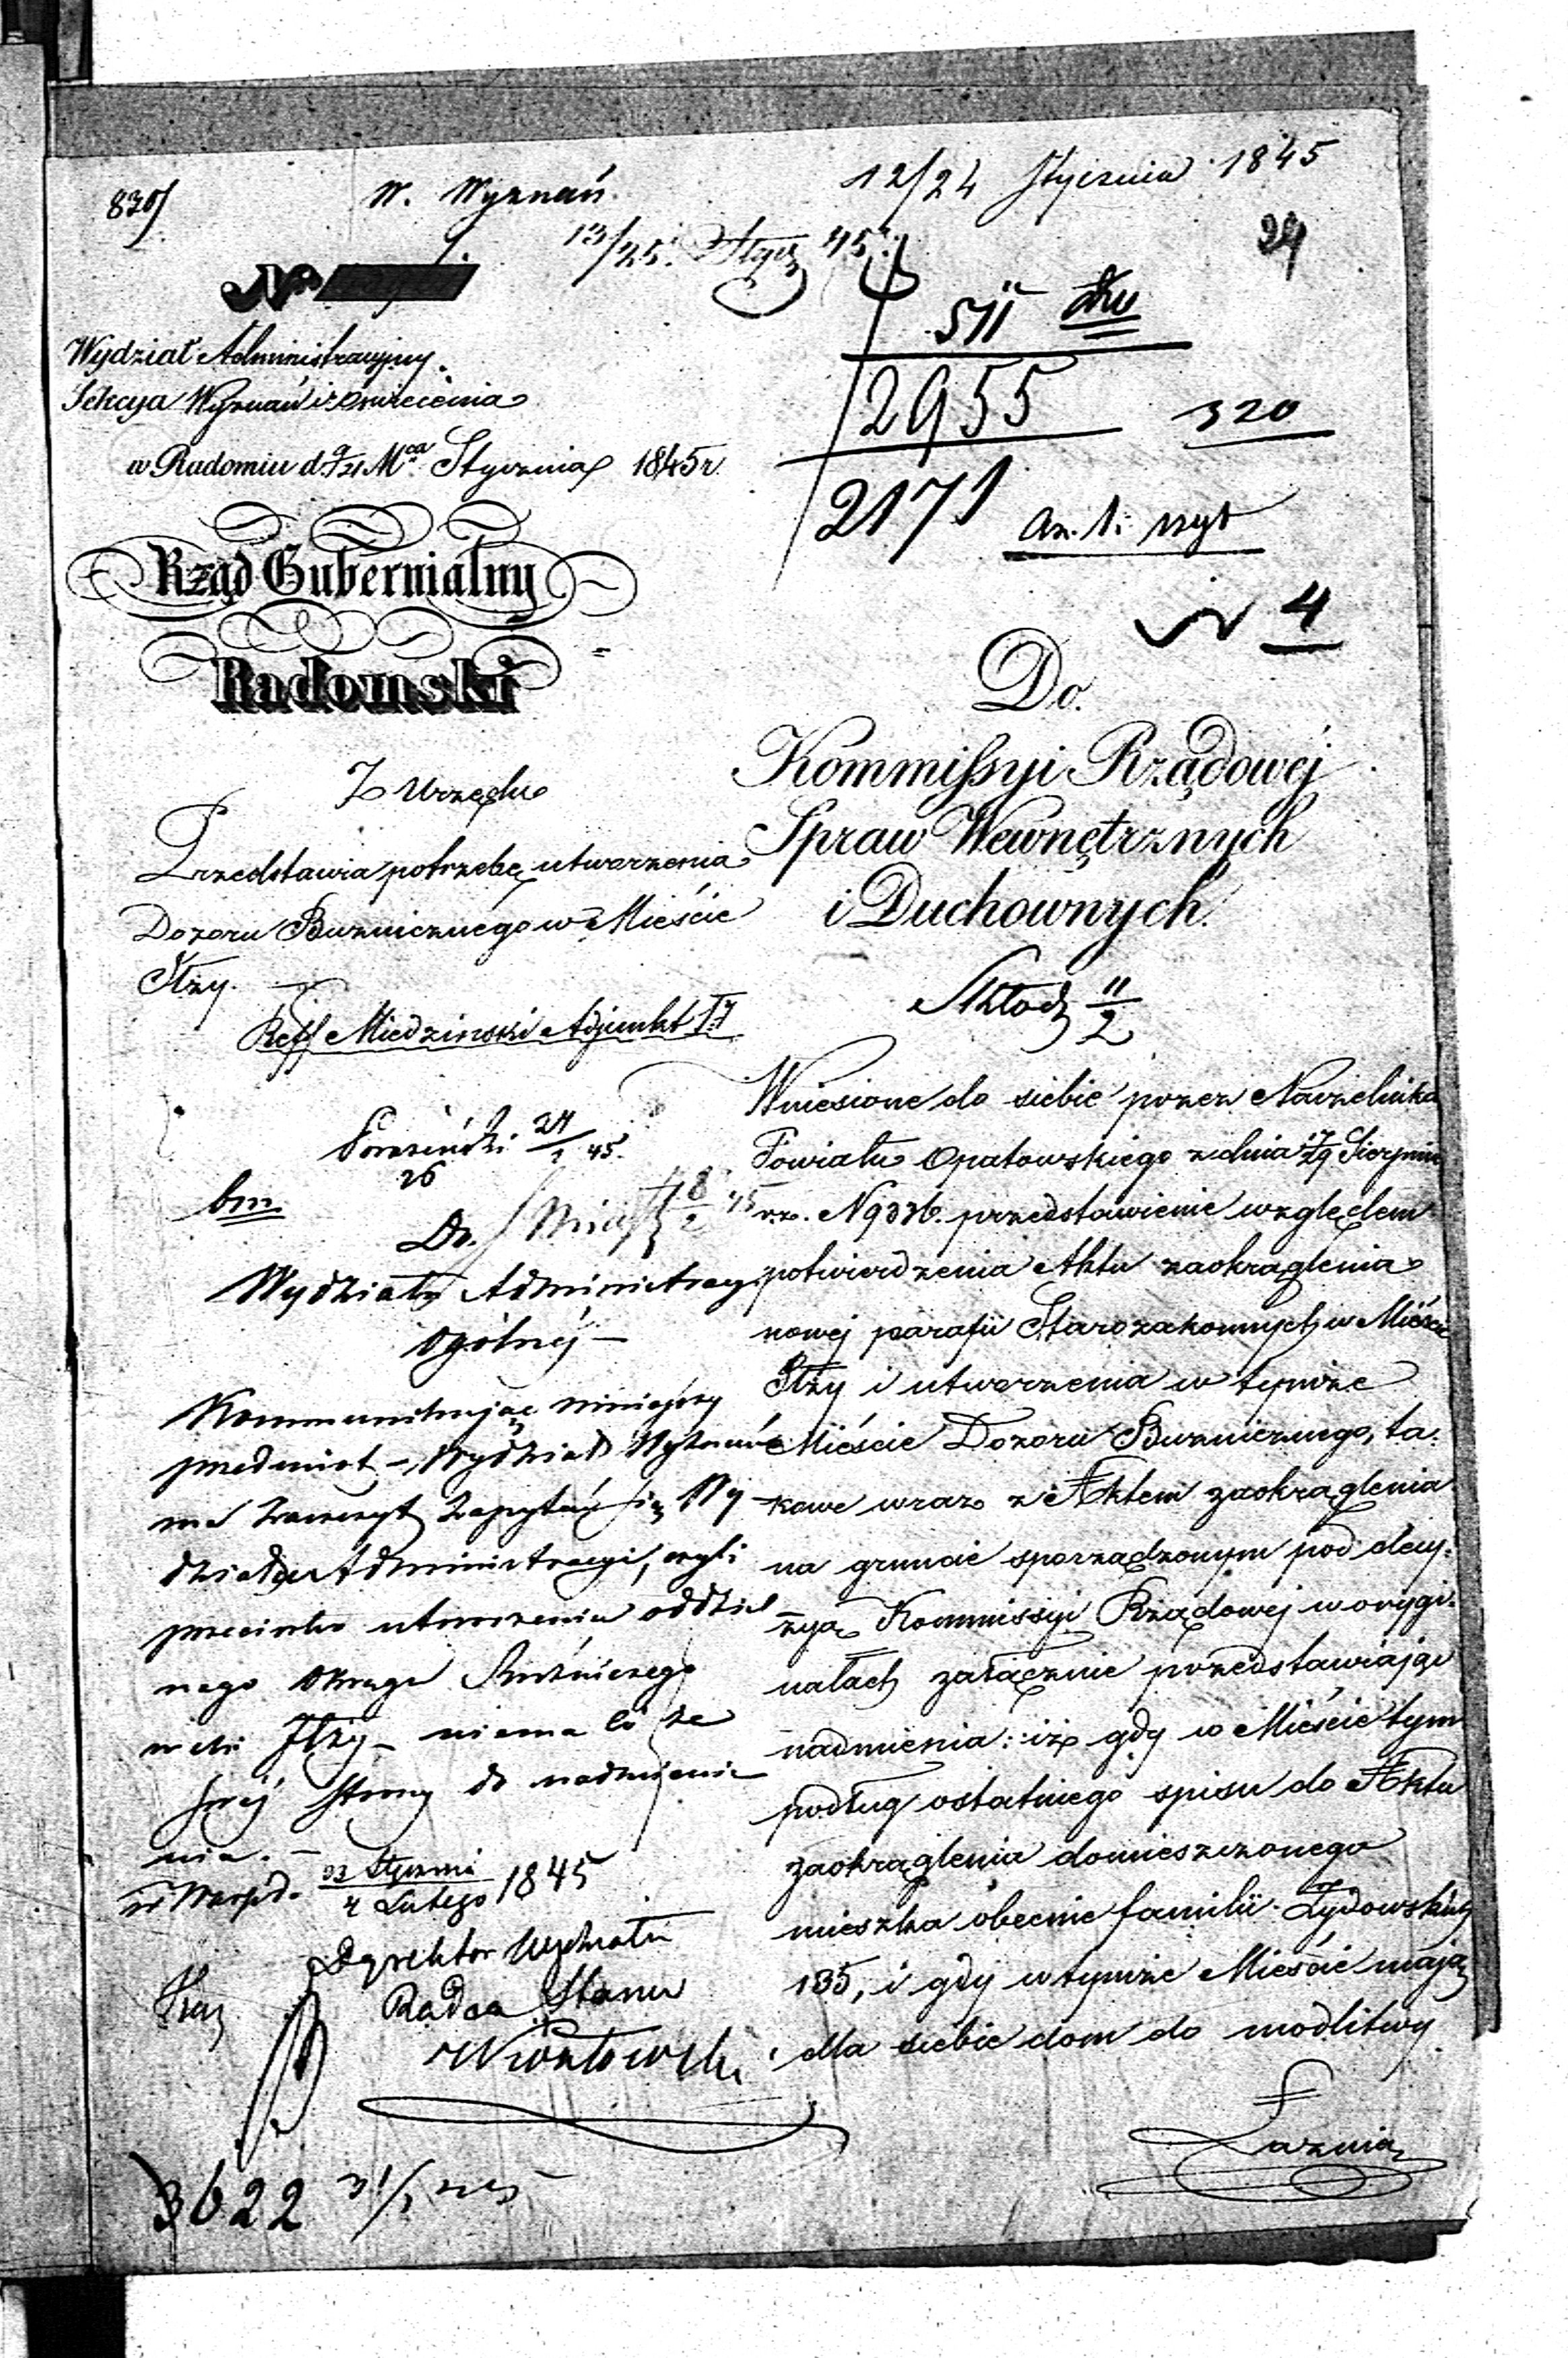 830
W. Wyznań.
12/24 Stycznia 1845
13/25. Stycz 45.
29
No
511
2955
320
2171
N 4
Wydział Administracyjny.
Sekcya Wyznań i Oświecenia
w Radomiu d. 9/21 Mca Stycznia 1845 r.
Rząd Gubernialny
Radomski
Z Urzędu
Przedstawia potrzebę utworzenia
Dozoru Bużnicznego w Mieście
Iłży.
Reff Miedzinski Adjunkt
24/1 45.
26
bm.
Do
Wydziału Administracyi
Ogólnéj –
Kommunikując niniejszy
przedmiot – Wydział Wyznań
ma zaszczyt zapytać się Wy
działu Administracyi, czyli
przeciwko utworzeniu oddziel
nego Okręgu Bużniczego
w Iłży – niema co ze
swéj strony do nadmienie
nia. –
w Warsz. d. 23 Stycznia / 4 Lutego 1845
Dyrektor Wydziału
Radca Stanu
3622
Do
Kommissyi Rządowéj
Spraw Wewnętrznych
i Duchownych.
11/2
Wniesione do siebie przez Naczelnika
Powiatu Opatowskiego z dnia 17/29 Sierpnia
r.z. N 9376. przedstawienie względem
potwierdzenia Aktu zaokrąglenia
nowej parafii Starozakonnych w Mieście
Iłży i utworzenia w tymże
Mieście Dozoru Bużnicznego, ta-
kowe wraz z Aktem zaokrąglenia
na gruncie sporządzonym pod decy-
zyą Kommissyi Rządowej w orygi-
nałach załącznie przedstawiając
nadmienia: iż gdy w Mieście tym
podług ostatniego spisu do Aktu
zaokrąglenia domieszczonego
mieszka obecnie familii Żydowskich
135, i gdy w tymże Mieście mają
dla siebie dom do modlitwy
Łaznią